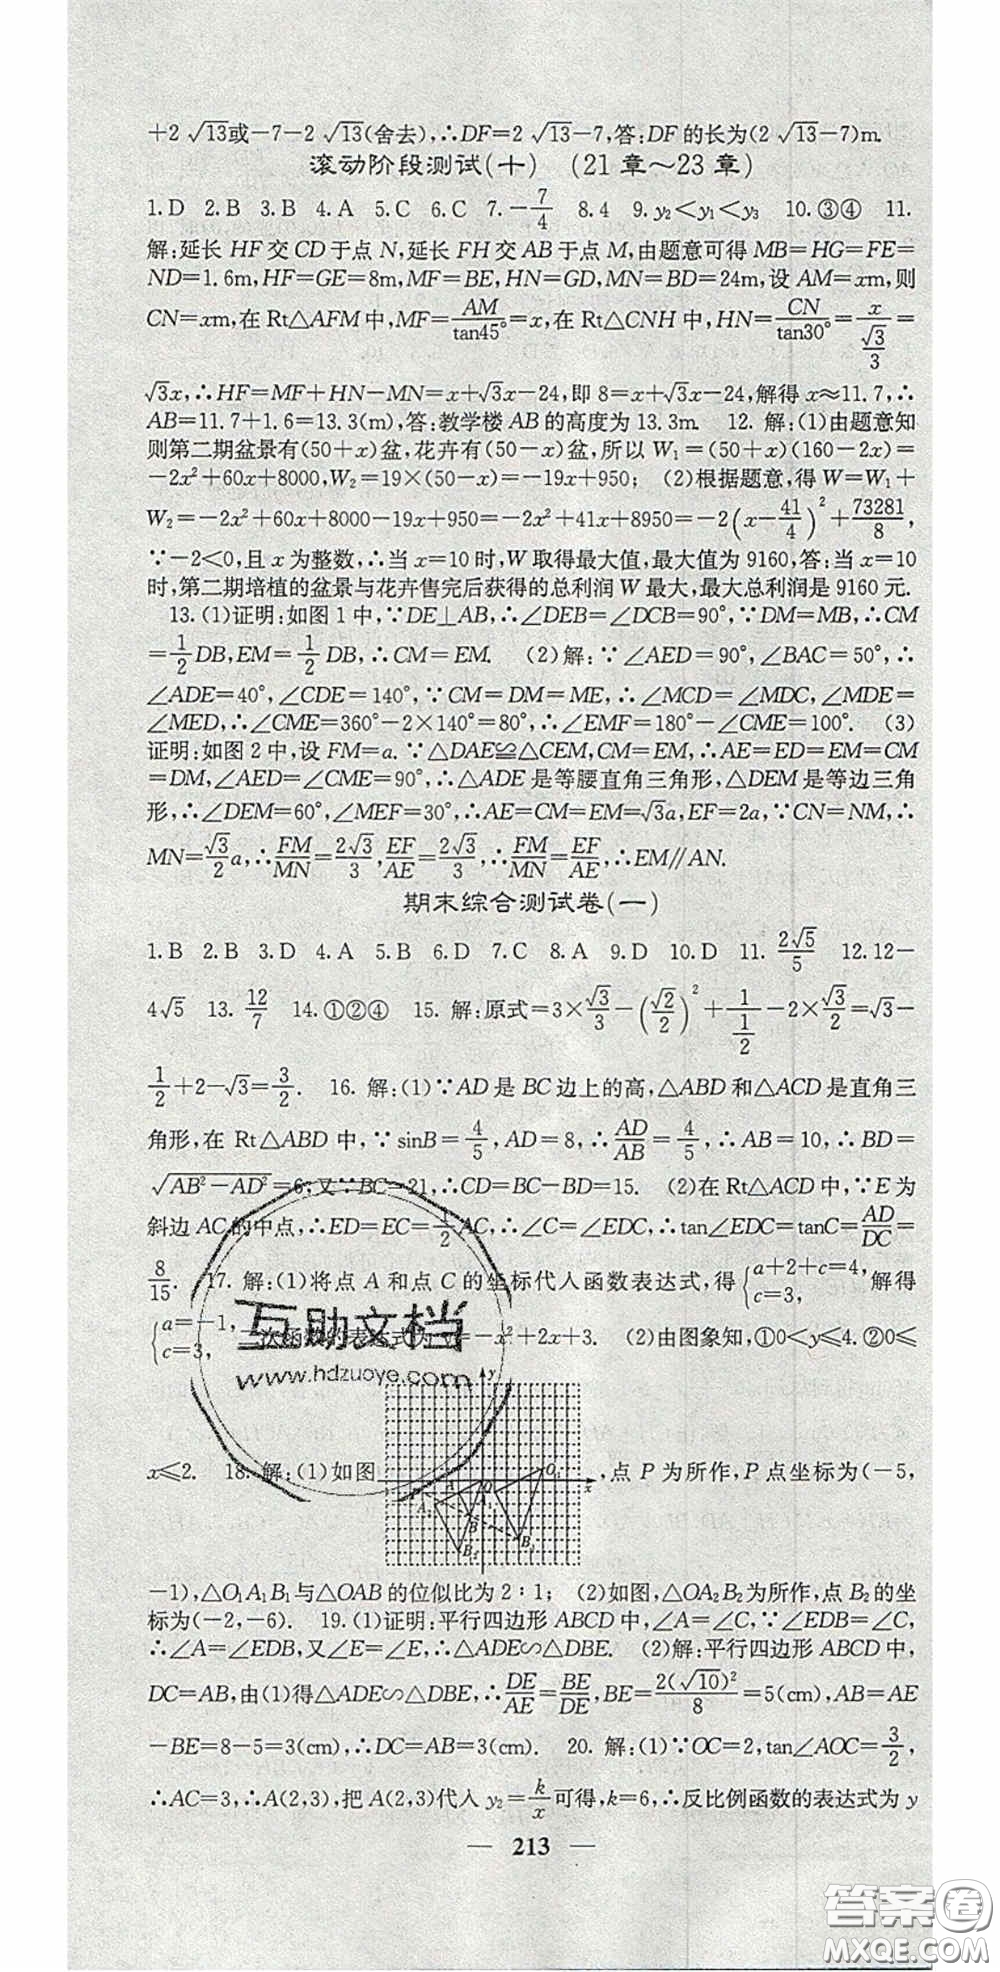 +2 √13或-7-2 √13(舍去),∴DF=2 √13-7,答:DF的长为(2 √13-7)m.
滚动阶段测试(十) (21章~23章)
1.D 2.B 3.B 4.A 5.C 6.C 7.-7/4 8.4 9.y₂<y₁<y₃ 10.③④ 11.
解:延长HF交CD于点N,延长FH交AB于点M,由题意可得MB=HG=FE=
ND=1.6m,HF=GE=8m,MF=BE,HN=GD,MN=BD=24m,设AM=xm,则
CN=xm,在Rt△AFM中,MF=AM/tan45°=x,在Rt△CNH中,HN=CN/tan30°=x/(√3/3)=
√3x,∴HF=MF+HN-MN=x+√3x-24,即8=x+√3x-24,解得x≈11.7,∴
AB=11.7+1.6=13.3(m),答:教学楼AB的高度为13.3m. 12.解:(1)由题意知
则第二期盆景有(50+x)盆,花卉有(50-x)盆,所以W₁=(50+x)(160-2x)=
-2x²+60x+8000,W₂=19×(50-x)=-19x+950; (2)根据题意,得W=W₁+
W₂=-2x²+60x+8000-19x+950=-2x²+41x+8950=-2(x-41/4)²+73281/8,
∵-2<0,且x为整数,∴当x=10时,W取得最大值,最大值为9160,答:当x=10
时,第二期培植的盆景与花卉售完后获得的总利润W最大,最大总利润是9160元.
13.(1)证明:如图1中,∵DE⊥AB,∴∠DEB=∠DCB=90°,∵DM=MB,∴CM
=1/2DB,EM=1/2DB,∴CM=EM. (2)解:∵∠AED=90°,∠BAC=50°,∴
∠ADE=40°,∠CDE=140°,∵CM=DM=ME,∴∠MCD=∠MDC,∠MDE=
∠MED,∴∠CME=360°-2×140°=80°,∴∠EMF=180°-∠CME=100°. (3)
证明:如图2中,设FM=a.∵△DAE≌△CEM,CM=EM,∴AE=ED=EM=CM
=DM,∠AED=∠CME=90°,∴△ADE是等腰直角三角形,△DEM是等边三角
形,∴∠DEM=60°,∠MEF=30°,∴AE=CM=EM=√3a,EF=2a,∵CN=NM,∴
MN=√3/2a,∴FM/MN=2√3/3,EF/AE=2√3/3,∴FM/MN=EF/AE,∴EM∥AN.
期末综合测试卷(一)
1.B 2.B 3.D 4.A 5.B 6.D 7.C 8.A 9.D 10.D 11.2√5/5 12.12-
4√5 13.12/7 14.①②④ 15.解:原式=3×√3/3-(√2/2)²+1/(1/2)-2×√3/2=√3-
1/2+2-√3=3/2. 16.解:(1)∵AD是BC边上的高,△ABD和△ACD是直角三
角形,在Rt△ABD中,∵sinB=4/5,AD=8,∴AD/AB=4/5,∴AB=10,∴BD=
√(AB²-AD²)=6,又∵BC=21,∴CD=BC-BD=15. (2)在Rt△ACD中,∵E为
斜边AC的中点,∴ED=EC=1/2AC,∴∠C=∠EDC,∴tan∠EDC=tanC=AD/DC=
8/15. 17.解:(1)将点A和点C的坐标代入函数表达式,得{a+2+c=4, c=3, 解得
{a=-1, c=3, 二次函数的表达式为y=-x²+2x+3. (2)由图象知,①0<y≤4.②0≤
互助文档
www.hdzuoye.com
x≤2. 18.解:(1)如图 ,点P为所作,P点坐标为(-5,
-1),△O₁A₁B₁与△OAB的位似比为2:1; (2)如图,△OA₂B₂为所作,点B₂的坐
标为(-2,-6). 19.(1)证明:平行四边形ABCD中,∠A=∠C,∵∠EDB=∠C,
∴∠A=∠EDB,又∠E=∠E,∴△ADE∽△DBE. (2)解:平行四边形ABCD中,
DC=AB,由(1)得△ADE∽△DBE,∴DE/AE=BE/DE,BE=2(√10)²/8=5(cm),AB=AE
-BE=8-5=3(cm),∴DC=AB=3(cm). 20.解:(1)∵OC=2,tan∠AOC=3/2,
∴AC=3,∴A(2,3),把A(2,3)代入y₂=k/x可得,k=6,∴反比例函数的表达式为y
— 213 —
答案圈
MXQE.COM